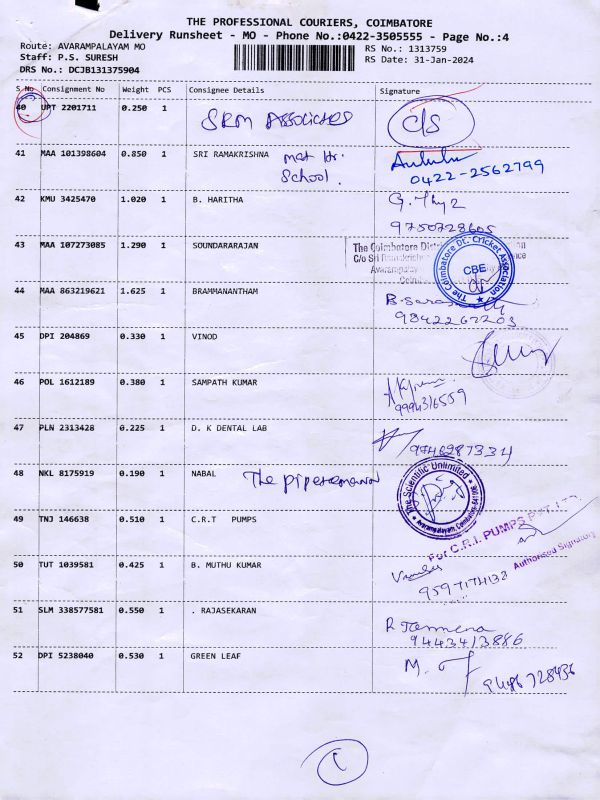 THE PROFESSIONAL COURIERS, COIMBATORE
Delivery Runsheet - MO - Phone No.:0422-3505555 - Page No.:4
Route: AVARAMPALAYAM MO
Staff: P.S. SURESH
DRS No.: DCJB131375904
RS No.: 1313759
RS Date: 31-Jan-2024
S No Consignment No Weight PCS Consignee Details Signature
40 UPT 2201711 0.250 1 SRM ASSOCIATES c/s
41 MAA 101398604 0.850 1 SRI RAMAKRISHNA mat Hr. School.
0422-2562799
42 KMU 3425470 1.020 1 B. HARITHA
9750728605
43 MAA 107273085 1.290 1 SOUNDARARAJAN
The Coimbatore
C/o Sri Ramakrishna
The Coimbatore Dt. Cricket Association
CBE
44 MAA 863219621 1.625 1 BRAMMANANTHAM
9842262203
45 DPI 204869 0.330 1 VINOD
46 POL 1612189 0.380 1 SAMPATH KUMAR
9994316559
47 PLN 2313428 0.225 1 D. K DENTAL LAB
9746287334
48 NKL 8175919 0.190 1 NABAL
The Scientific Unlimited
49 TNJ 146638 0.510 1 C.R.T PUMPS
For C.R.I. PUMPS PVT. LTD.
Authorised Signatory
50 TUT 1039581 0.425 1 B. MUTHU KUMAR
51 SLM 338577581 0.550 1 . RAJASEKARAN
9443413886
52 DPI 5238040 0.530 1 GREEN LEAF
M.
9486728436